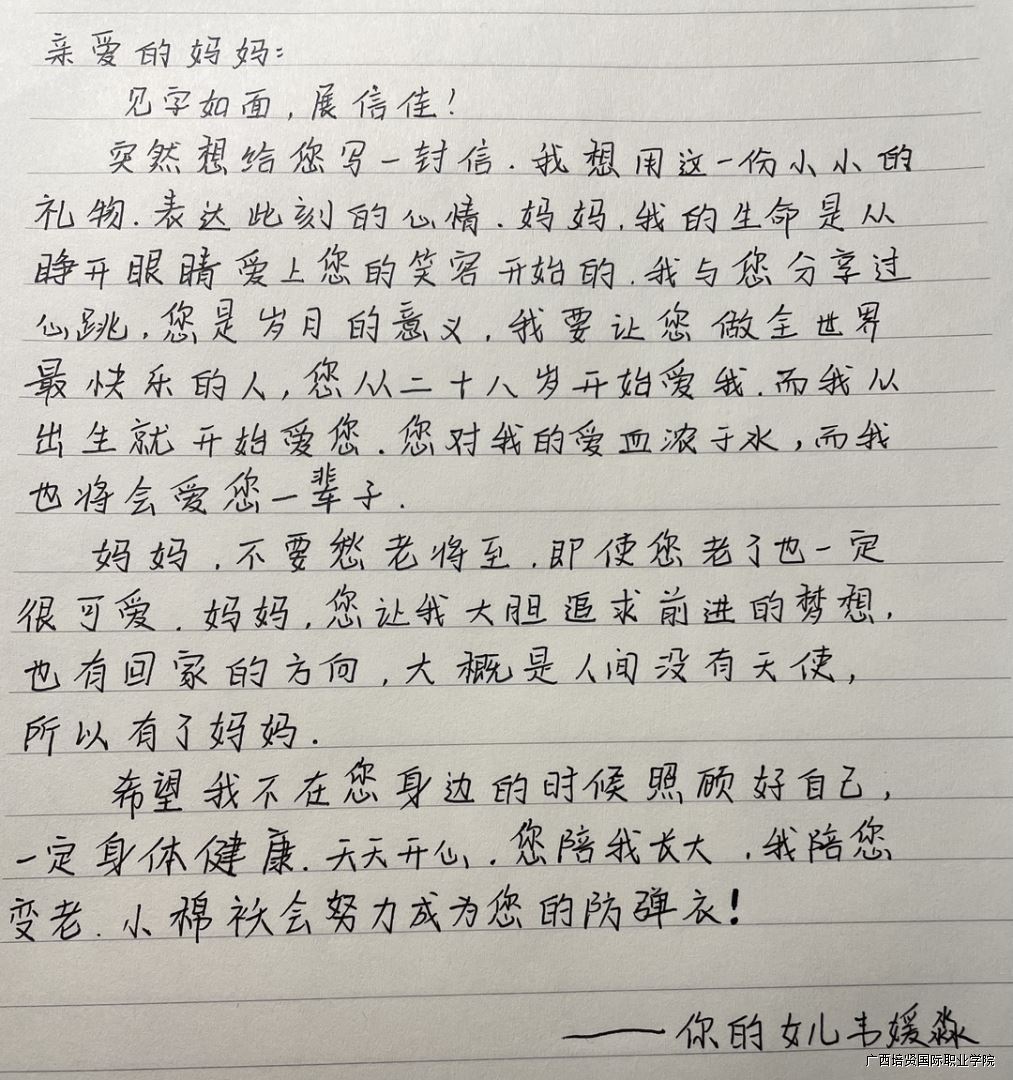 亲爱的妈妈:
见字如面,展信佳!
突然想给您写一封信.我想用这一份小小的
礼物.表达此刻的心情.妈妈,我的生命是从
睁开眼睛爱上您的笑容开始的.我与您分享过
心跳,您是岁月的意义,我要让您做全世界
最快乐的人,您从二十八岁开始爱我.而我从
出生就开始爱您.您对我的爱血浓于水,而我
也将会爱您一辈子.
妈妈,不要愁老将至.即使您老了也一定
很可爱.妈妈,您让我大胆追求前进的梦想,
也有回家的方向,大概是人间没有天使,
所以有了妈妈.
希望我不在您身边的时候照顾好自己,
一定身体健康.天天开心.您陪我长大,我陪您
变老.小棉袄会努力成为您的防弹衣!
——你的女儿韦媛淼
广西培贤国际职业学院